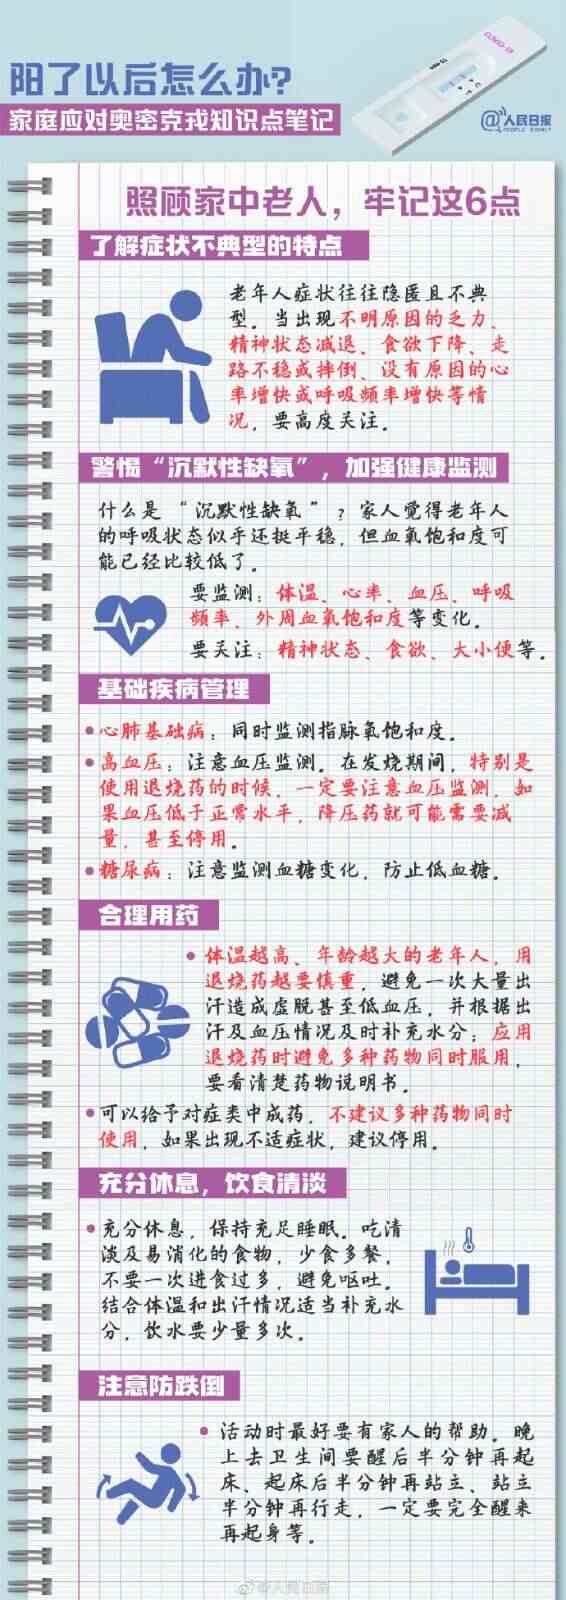 阳了以后怎么办?
家庭应对奥密克戎知识点笔记
COVID-19
@人民日报
PEOPLE'S DAILY
照顾家中老人，牢记这6点
了解症状不典型的特点
老年人症状往往隐匿且不典
型。当出现不明原因的乏力、
精神状态减退、食欲下降、走
路不稳或摔倒、没有原因的心
率增快或呼吸频率增快等情
况，要高度关注。
警惕“沉默性缺氧”，加强健康监测
什么是“沉默性缺氧”？家人觉得老年人
的呼吸状态似乎还挺平稳，但血氧饱和度可
能已经比较低了。
要监测：体温、心率、血压、呼吸
频率、外周血氧饱和度等变化。
要关注：精神状态、食欲、大小便等。
基础疾病管理
心肺基础病：同时监测指脉氧饱和度。
高血压：注意血压监测。在发烧期间，特别是
使用退烧药的时候，一定要注意血压监测，如
果血压低于正常水平，降压药就可能需要减
量，甚至停用。
糖尿病：注意监测血糖变化，防止低血糖。
合理用药
体温越高、年龄越大的老年人，用
退烧药越要慎重，避免一次大量出
汗造成虚脱甚至低血压，并根据出
汗及血压情况及时补充水分；应用
退烧药时避免多种药物同时服用，
要看清楚药物说明书。
可以给予对症类中成药，不建议多种药物同时
使用，如果出现不适症状，建议停用。
充分休息，饮食清淡
充分休息，保持充足睡眠。吃清
淡及易消化的食物，少食多餐，
不要一次进食过多，避免呕吐。
结合体温和出汗情况适当补充水
分，饮水要少量多次。
注意防跌倒
活动时最好要有家人的帮助。晚
上去卫生间要醒后半分钟再起
床、起床后半分钟再站立、站立
半分钟再行走，一定要完全醒来
再起身等。
@人民日报